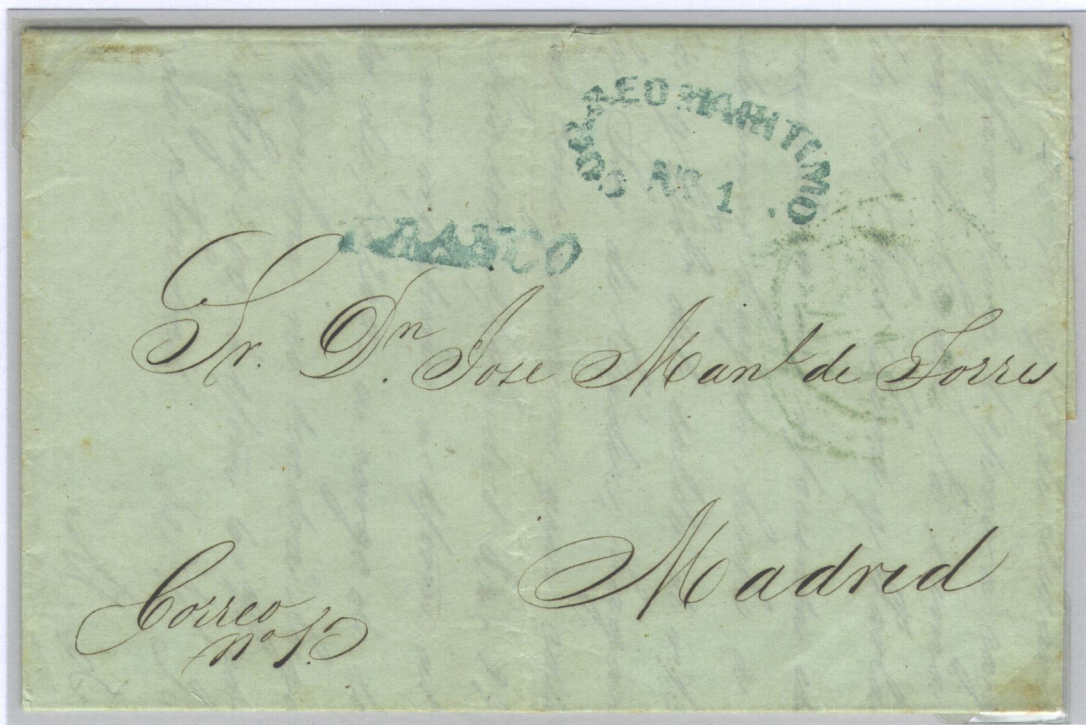 CORREO MARITIMO
1
FRANCO
Sr. Dn. Jose Manl. de Torres
Madrid
Correo
no 1.